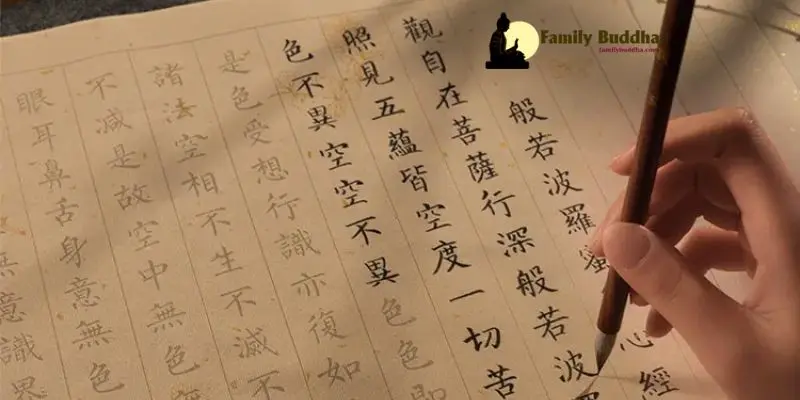 Family Buddha
familybuddha.com
般若波羅蜜心經
觀自在菩薩行深般若波羅
照見五蘊皆空度一切苦
色不異空空不異色色即
是色受想行識亦復如
諸法空相不生不滅不
不減是故空中無色
眼耳鼻舌身意無色
無意識界